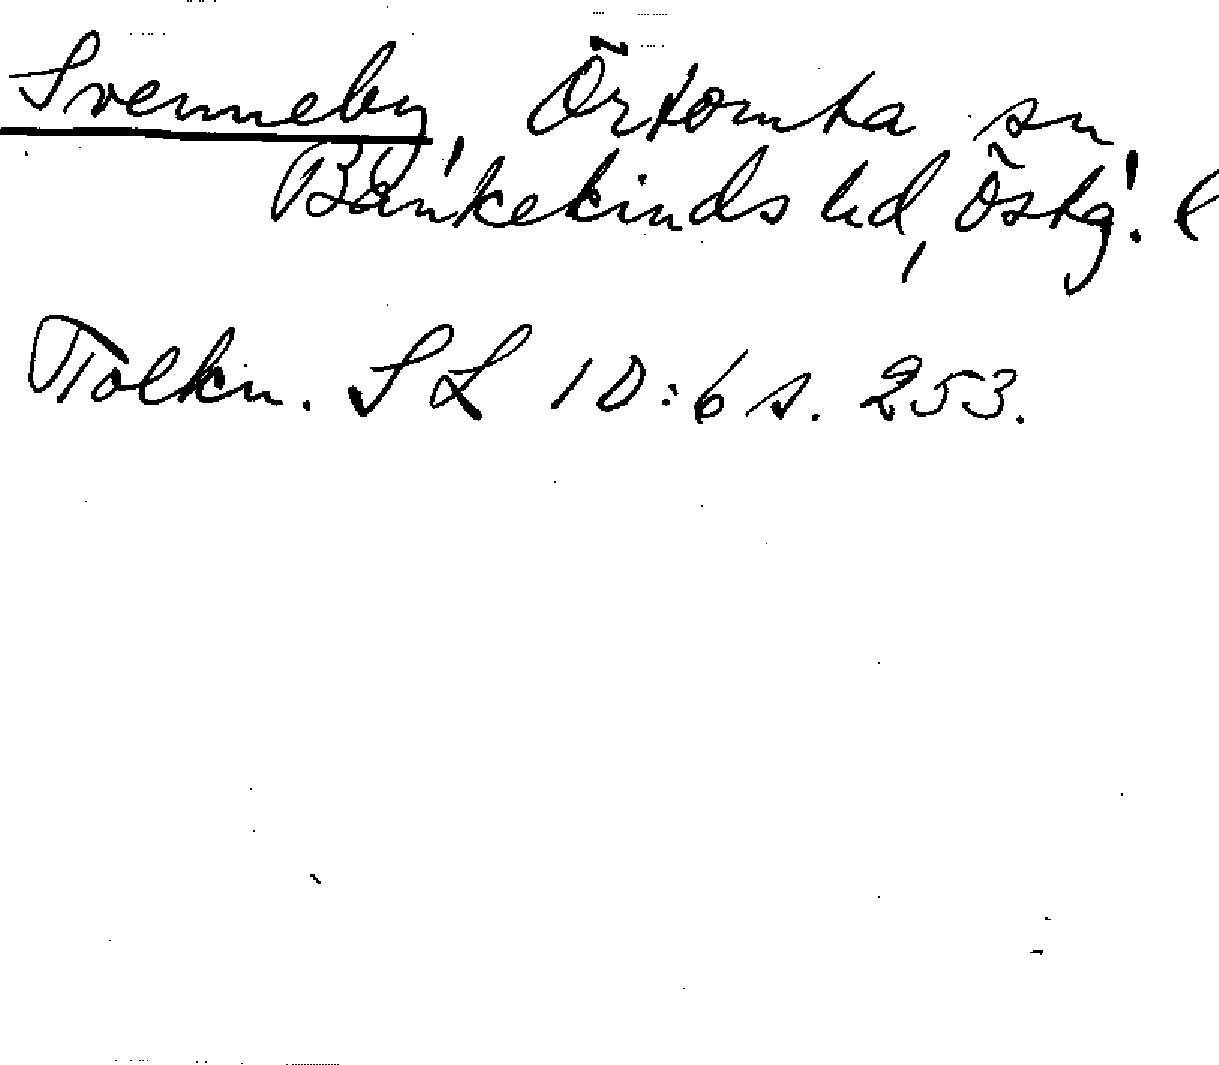 Svenneby, Örtomta sn
Bankekinds hd, Östg. l
Tolkn. SL 10:6 s. 253.